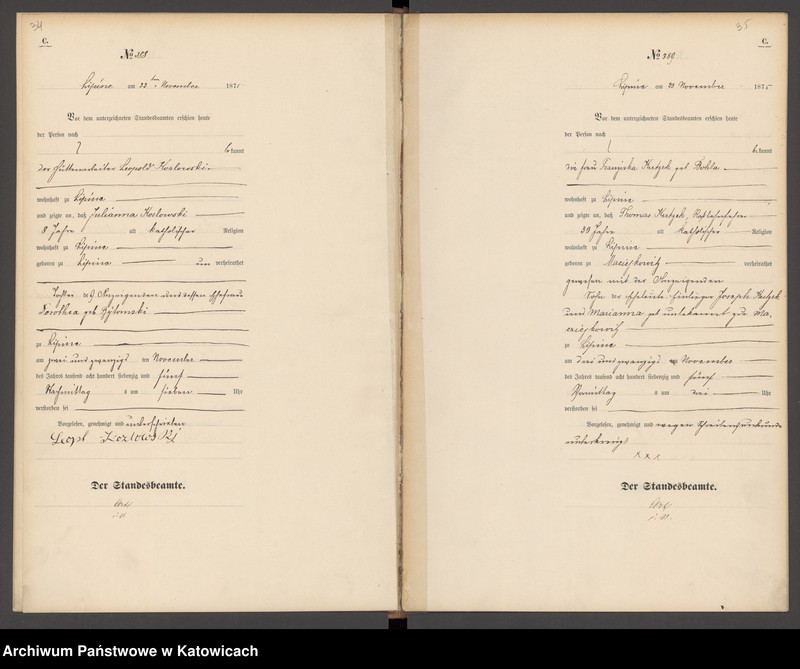 34
C.
№ 388
Lipine am 22ten November 1875
Vor dem unterzeichneten Standesbeamten erschien heute
der Person nach
bekannt
der Hüttenarbeiter Leopold Kozlowski
wohnhaft zu Lipine
und zeigte an, daß Julianna Kozlowski
8 Jahre alt katholischer Religion
wohnhaft zu Lipine
geboren zu Lipine unverheirathet
Tochter des Anzeigenden und dessen Ehefrau
Dorothea geb Bytomski
zu Lipine
am zwei und zwanzigsten November
des Jahres tausend acht hundert siebenzig und fünf
Nachmittag um sieben Uhr
verstorben sei
Vorgelesen, genehmigt und unterschrieben
Leopl Kozlowski
Der Standesbeamte.
35
C.
№ 389
Lipine am 23 November 1875
Vor dem unterzeichneten Standesbeamten erschien heute
der Person nach
bekannt
die Frau Franziska Kurtzek geb
wohnhaft zu Lipine
und zeigte an, daß Thomas Kurtzek,
39 Jahre alt katholischer Religion
wohnhaft zu Lipine
geboren zu Macieykowitz verheirathet
gewesen mit der Anzeigenden
Sohn der Eheleute Einlieger Joseph Kurtzek
und Marianna geb unbekannt zu Ma-
cieykowitz
zu Lipine
am drei und zwanzigsten November
des Jahres tausend acht hundert siebenzig und fünf
Vormittag um Uhr
verstorben sei
Vorgelesen, genehmigt und wegen Schreibensunkunde
unterkreuzt
x x x
Der Standesbeamte.
Archiwum Państwowe w Katowicach